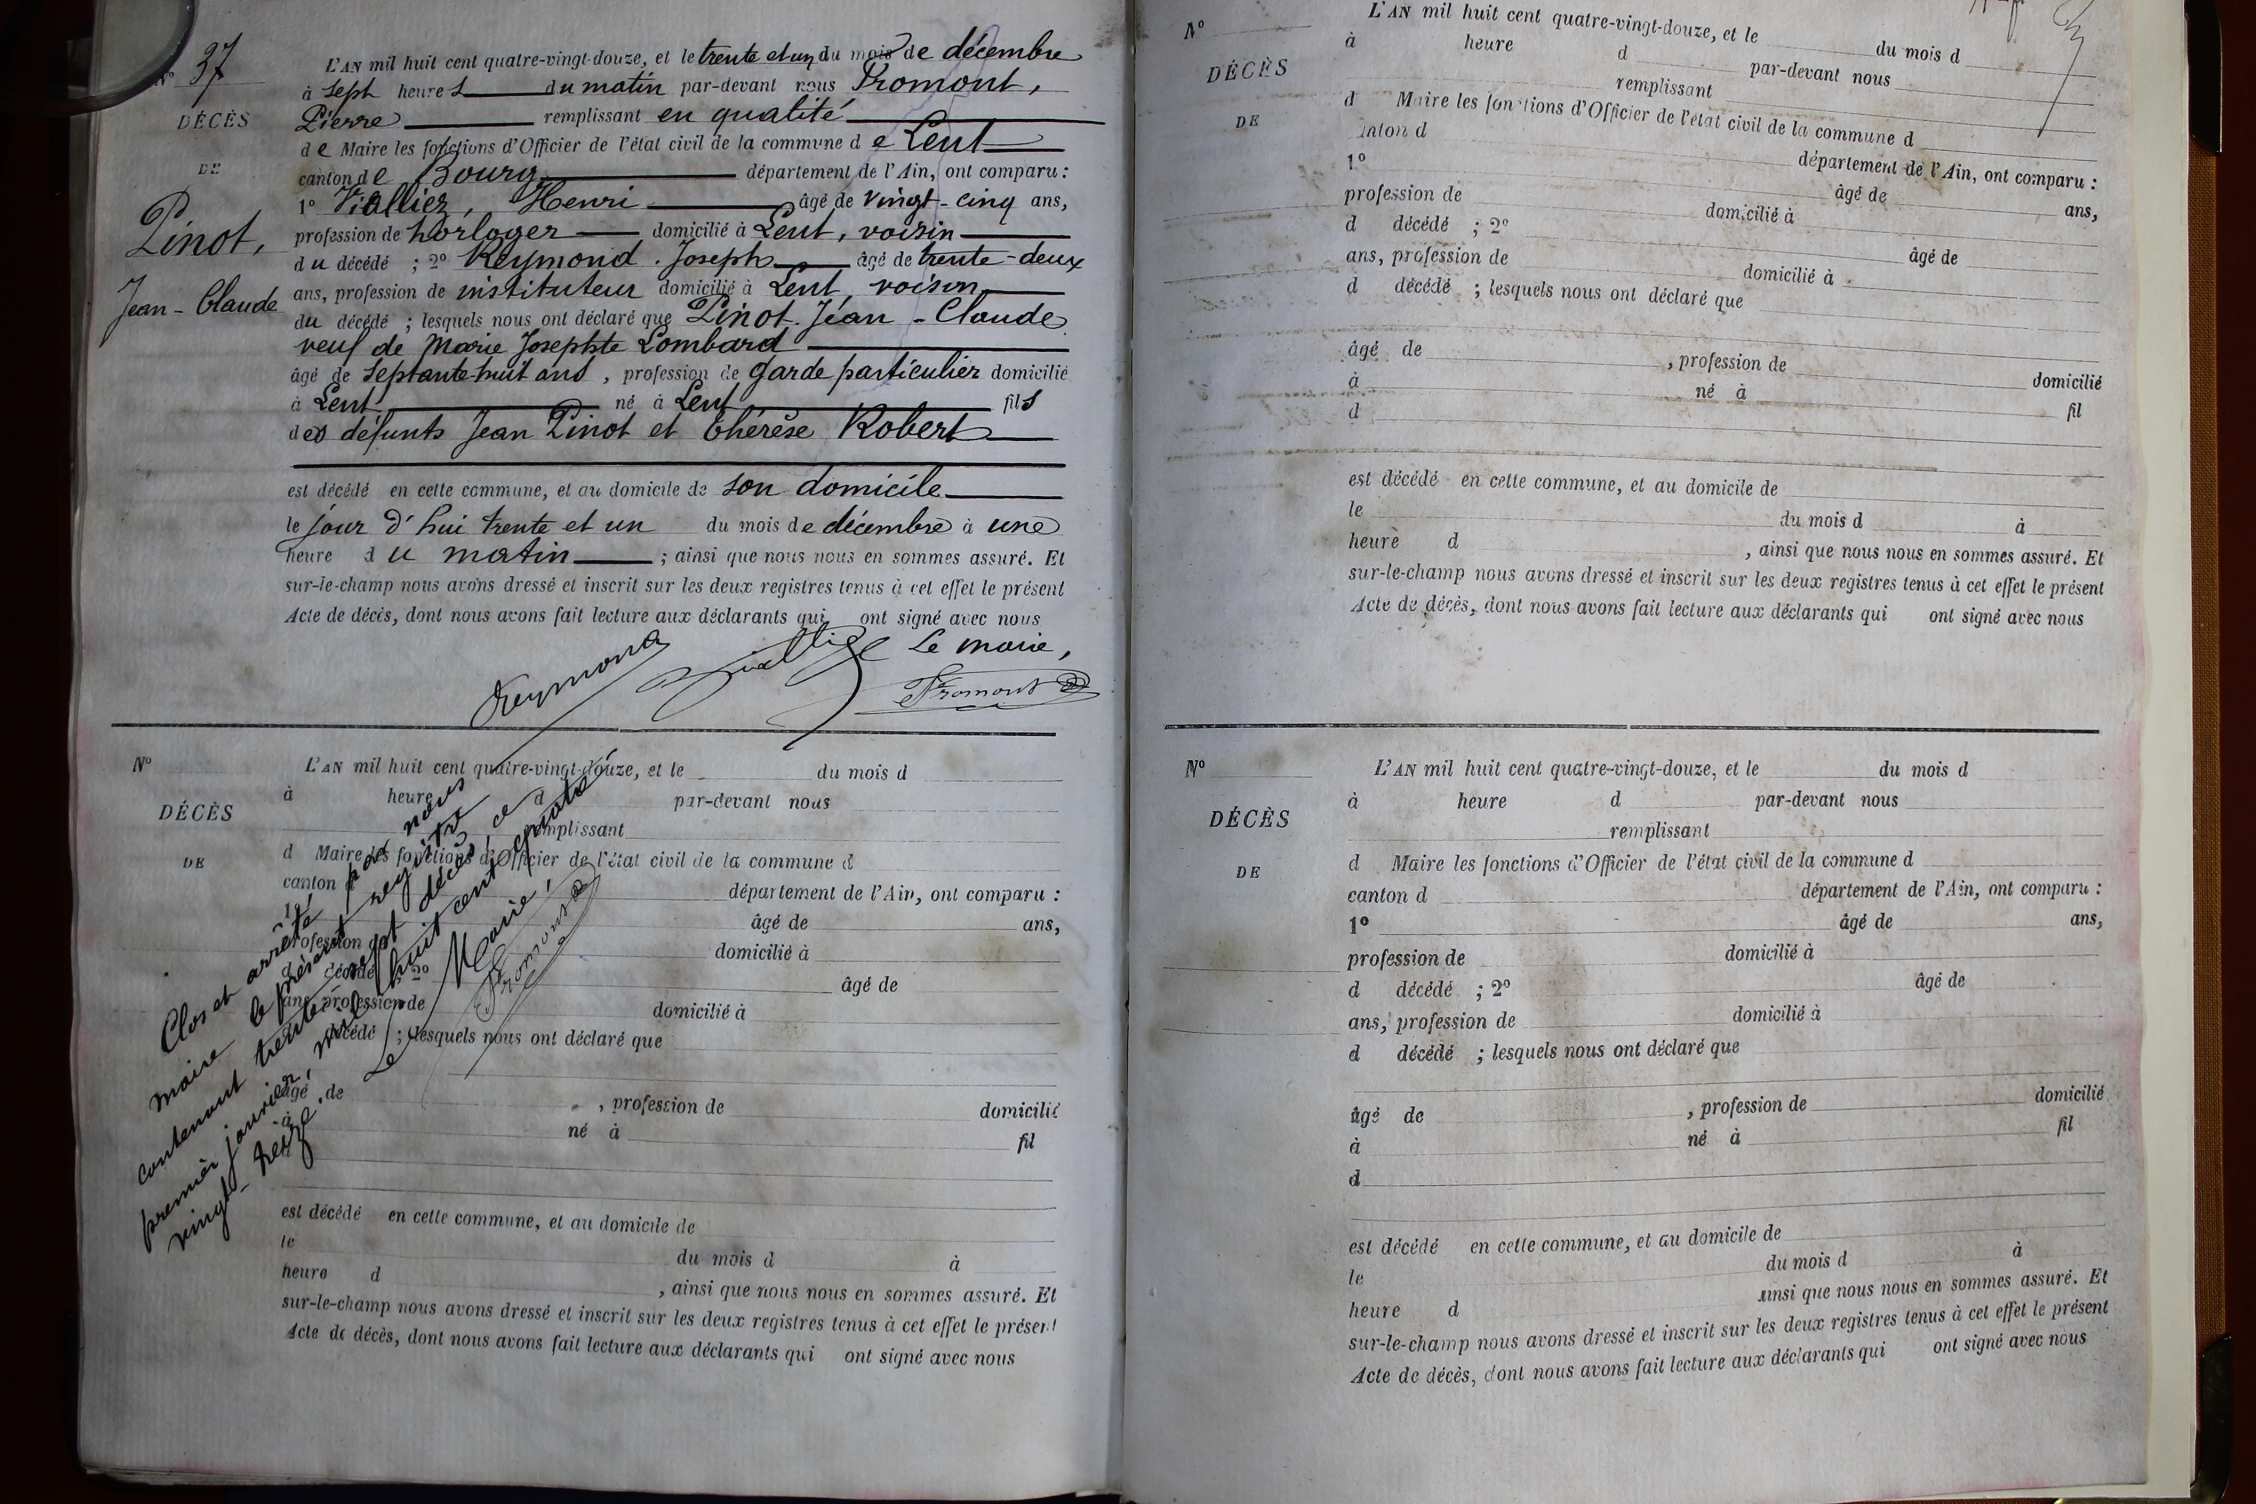 N° 37
DÉCÈS
DE
Pinot,
Jean-Claude
L'AN mil huit cent quatre-vingt-douze, et le trente et un du mois de décembre
à sept heures du matin par-devant nous Fromont,
Pierre remplissant en qualité
de Maire les fonctions d'Officier de l'état civil de la commune de Lent
canton de Bourg département de l'Ain, ont comparu :
1° Viallier, Henri âgé de vingt-cinq ans,
profession de horloger domicilié à Lent, voisin
du décédé ; 2° Reymond Joseph âgé de trente-deux
ans, profession de instituteur domicilié à Lent voisin
du décédé ; lesquels nous ont déclaré que Pinot Jean-Claude
veuf de Marie Josephte Lombard
âgé de septante-huit ans, profession de garde particulier domicilié
à Lent né à Lent fils
des défunts Jean Pinot et Thérèse Robert
est décédé en cette commune, et au domicile de son domicile
le jour d'hui trente et un du mois de décembre à une
heure du matin ; ainsi que nous nous en sommes assuré. Et
sur-le-champ nous avons dressé et inscrit sur les deux registres tenus à cet effet le présent
Acte de décès, dont nous avons fait lecture aux déclarants qui ont signé avec nous
Reymond Viallier Le maire,
Fromont
N°
DÉCÈS
DE
L'AN mil huit cent quatre-vingt-douze, et le du mois d
à heure d par-devant nous
remplissant
d Maire les fonctions d'Officier de l'état civil de la commune d
canton d département de l'Ain, ont comparu :
1° âgé de ans,
profession de domicilié à
d décédé ; 2° âgé de
ans, profession de domicilié à
d décédé ; lesquels nous ont déclaré que
âgé de , profession de domicilié
à né à fil
est décédé en cette commune, et au domicile de
le du mois d à
heure d , ainsi que nous nous en sommes assuré. Et
sur-le-champ nous avons dressé et inscrit sur les deux registres tenus à cet effet le présent
Acte de décès, dont nous avons fait lecture aux déclarants qui ont signé avec nous
Clos et arrêté par nous
maire le présent registre
contenant trente-sept décès, ce
premier janvier, mil huit cent quatre
vingt-treize.
Le Maire,
Fromont
N°
DÉCÈS
DE
L'AN mil huit cent quatre-vingt-douze, et le du mois d
à heure d par-devant nous
remplissant
d Maire les fonctions d'Officier de l'état civil de la commune d
canton d département de l'Ain, ont comparu :
1° âgé de ans,
profession de domicilié à
d décédé ; 2° âgé de
ans, profession de domicilié à
d décédé ; lesquels nous ont déclaré que
âgé de , profession de domicilié
à né à fil
d
est décédé en cette commune, et au domicile de
le du mois d à
heure d , ainsi que nous nous en sommes assuré. Et
sur-le-champ nous avons dressé et inscrit sur les deux registres tenus à cet effet le présent
Acte de décès, dont nous avons fait lecture aux déclarants qui ont signé avec nous
N°
DÉCÈS
DE
L'AN mil huit cent quatre-vingt-douze, et le du mois d
à heure d par-devant nous
remplissant
d Maire les fonctions d'Officier de l'état civil de la commune d
canton d département de l'Ain, ont comparu :
1° âgé de ans,
profession de domicilié à
d décédé ; 2° âgé de
ans, profession de domicilié à
d décédé ; lesquels nous ont déclaré que
âgé de , profession de domicilié
à né à fil
d
est décédé en cette commune, et au domicile de
le du mois d à
heure d ainsi que nous nous en sommes assuré. Et
sur-le-champ nous avons dressé et inscrit sur les deux registres tenus à cet effet le présent
Acte de décès, dont nous avons fait lecture aux déclarants qui ont signé avec nous